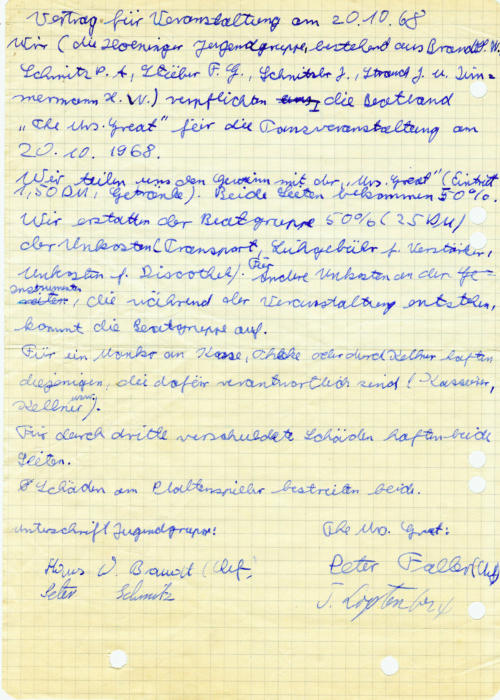 Vertrag für Veranstaltung am 20.10.68
Wir (die Hoeninger Jugendgruppe, bestehend aus Brandt H. W.
Schmitz P. A, Stieber F. G., Schnitzler J., Strauch J. u. Zim-
mermann H. W.) verpflichten uns, die Beatband
„The Mrs. Great" für die Tanzveranstaltung am
20. 10. 1968.
Wir teilen uns den Gewinn mit der „Mrs. Great" (Eintritt
1,50 DM, Getränke). Beide Seiten bekommen 50%.
Wir erstatten der Beatgruppe 50% (25 DM)
der Unkosten (Transport, Leihgebühr f. Verstärker,
Unkosten f. Discothek). Für andere Unkosten an der
Instrumenten, die während der Veranstaltung entstehen,
kommt die Beatgruppe auf.
Für ein Manko an Kasse, Theke oder durch Kellner haften
diejenigen, die dafür verantwortlich sind (Kassierer,
Kellner usw.).
Für durch dritte verschuldete Schäden haften beide
Seiten.
Schäden am Plattenspieler bestreiten beide.
Unterschrift Jugendgruppe: The Mrs. Great:
Hans W. Brandt (Chef) Peter Faller (Chef)
Peter Schmitz